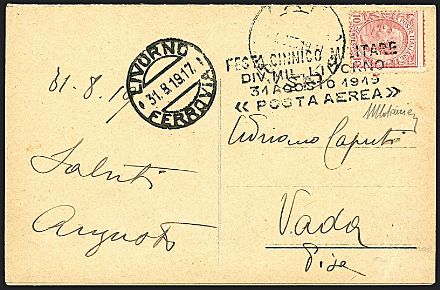 31.8.19
LIVORNO
31.8.19.17.
FERROVIA
FESTA GINNICO MILITARE
DIV. MIL. LIVORNO
31 AGOSTO 1919
« POSTA AEREA »
Saluti
Augusto
Adriano Caputi
Vada
Pisa